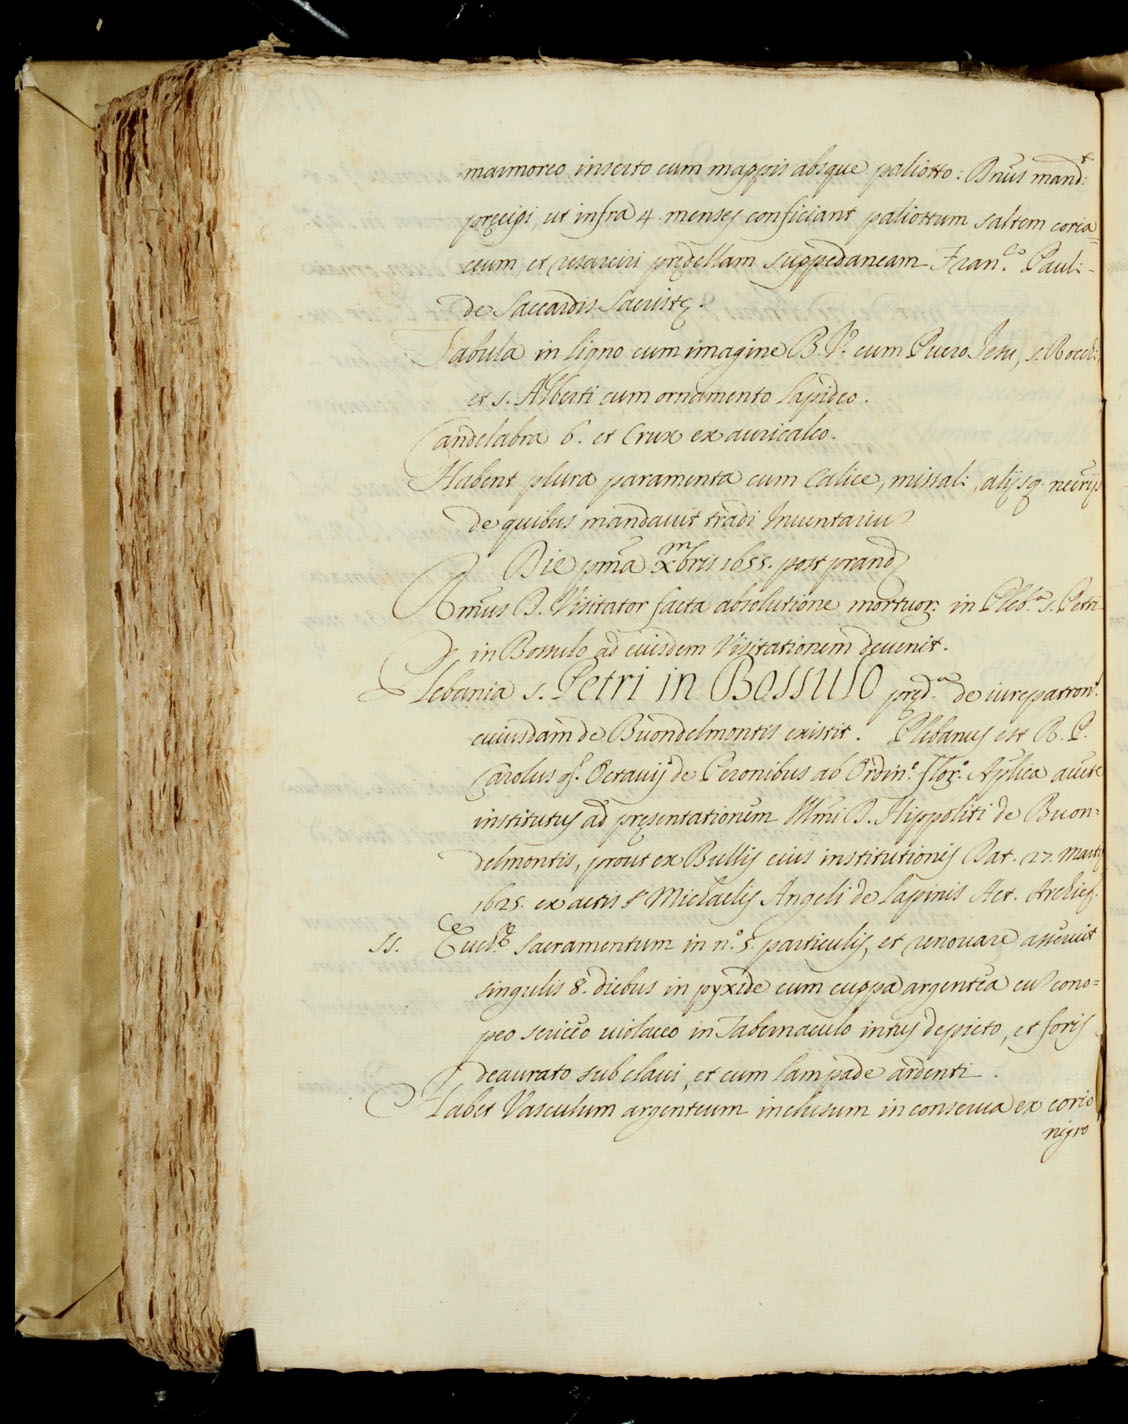 marmoreo inserto cum mappis absque paliotto: Dnus mand.t
precipi, ut infra 4. menses conficiant paliottum saltem coria=
ceum, et resarciri predellam suppedaneam Fran.co Pauli
de Saccardis Sacristę.
Tabula in ligno cum imagine B. V.e cum Puero Iesu, s. Rocchi
et s. Alberti cum ornamento lapideo.
Candelabra 6. et Crux ex auricalco.
Habent plura paramenta cum Calice, missali, alijsq. necrijs
de quibus mandavit tradi Inventariu
Die pma Xmbris 1655. post prand
Rmus D. Visitator facta absolutione mortuor. in Pleb.a s. Petri
in Bossulo ad eiusdem Visitationem devenit.
Plebania s. Petri in Bossulo pred.a de iurepatron.
cuiusdam de Buondelmontis existit. Plebanus est R. P.
Carolus q. Octavij de Ceronibus ab Ordin.e Flor.o Aplica aucte
institutus ad presentationem Illmi D. Hippoliti de Buon=
delmontis, prout ex Bullis eius institutionis Dat. 27. Martij
1625. ex actis s Michaelis Angeli de Lapinis Act. Archiep.
SS. Euch.e sacramentum in n.o 5. particulis, et renovare asseruit
singulis 8. diebus in pyxide cum cuppa argentea cu cono=
peo sericeo violaceo in Tabernaculo intus depicto, et foris
deaurato sub clavi, et cum lampade ardenti.
Habet Vasculum argenteum inclusum in conserva ex corio
nigro